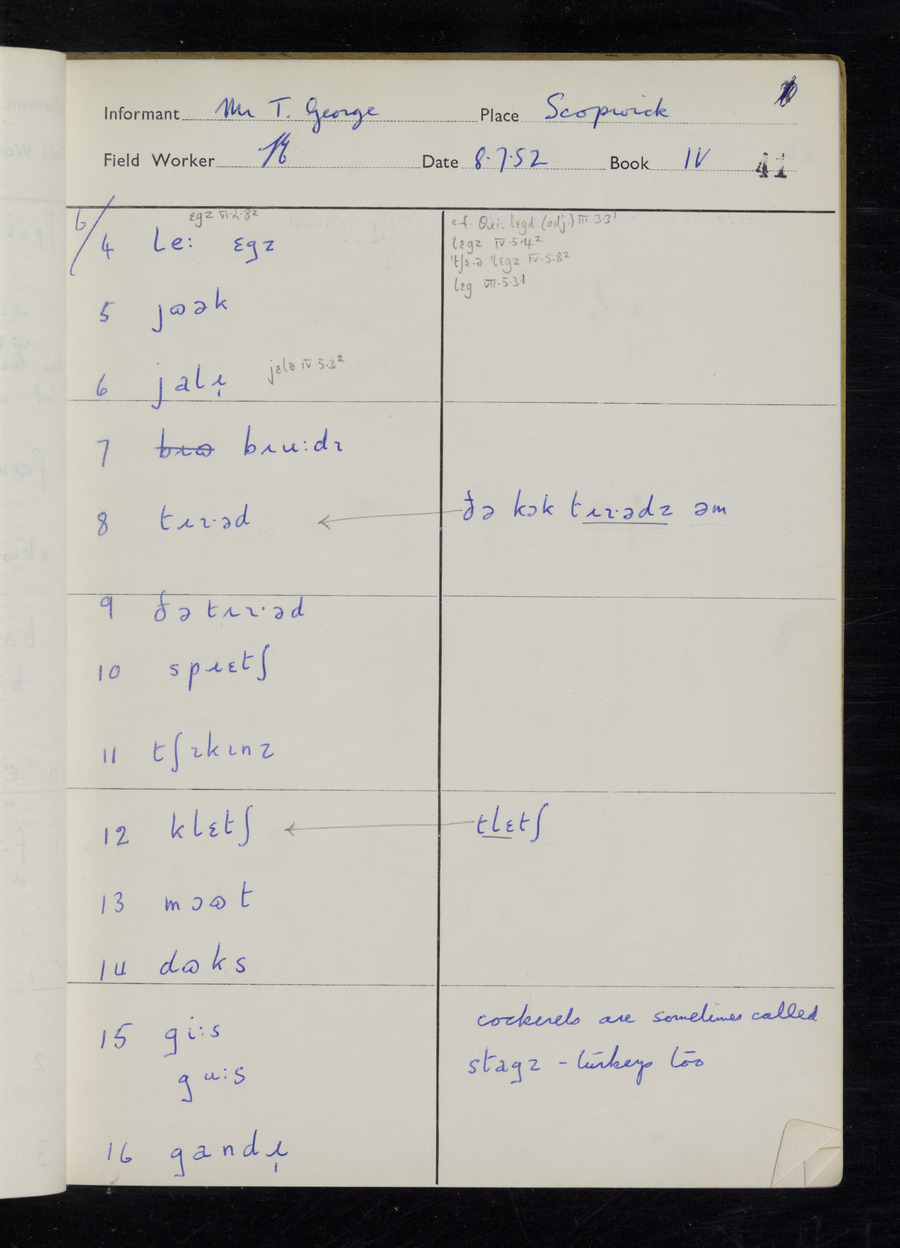 Informant Mr T. George Place Scopwick
Field Worker Date 8.7.52 Book IV 41
6/
ɛgz VI.2.8²
4 le: ɛgz
c.f. Qui: lɛgd (adj.) III.3.3¹
lɛgz IV.5.4²
'tʃɛ.ə 'lɛgz IV.5.8²
lɛg VII.5.3¹
5 jɷək
6 jalɪ̣ jɛlə IV.5.3²
7 bɪɷ bɪu:dz
8 tɪɪ·əd ← ðə kɔk tɪɪ·ədz əm
9 ðə tɪɪ·əd
10 spɹɛtʃ
11 tʃɪkɪnz
12 klɛtʃ ← tlɛtʃ
13 mɔɷt
14 dɷks
15 gi:s
gu:s
cockerels are sometimes called
stagz - turkeys too
16 gandɪ̣